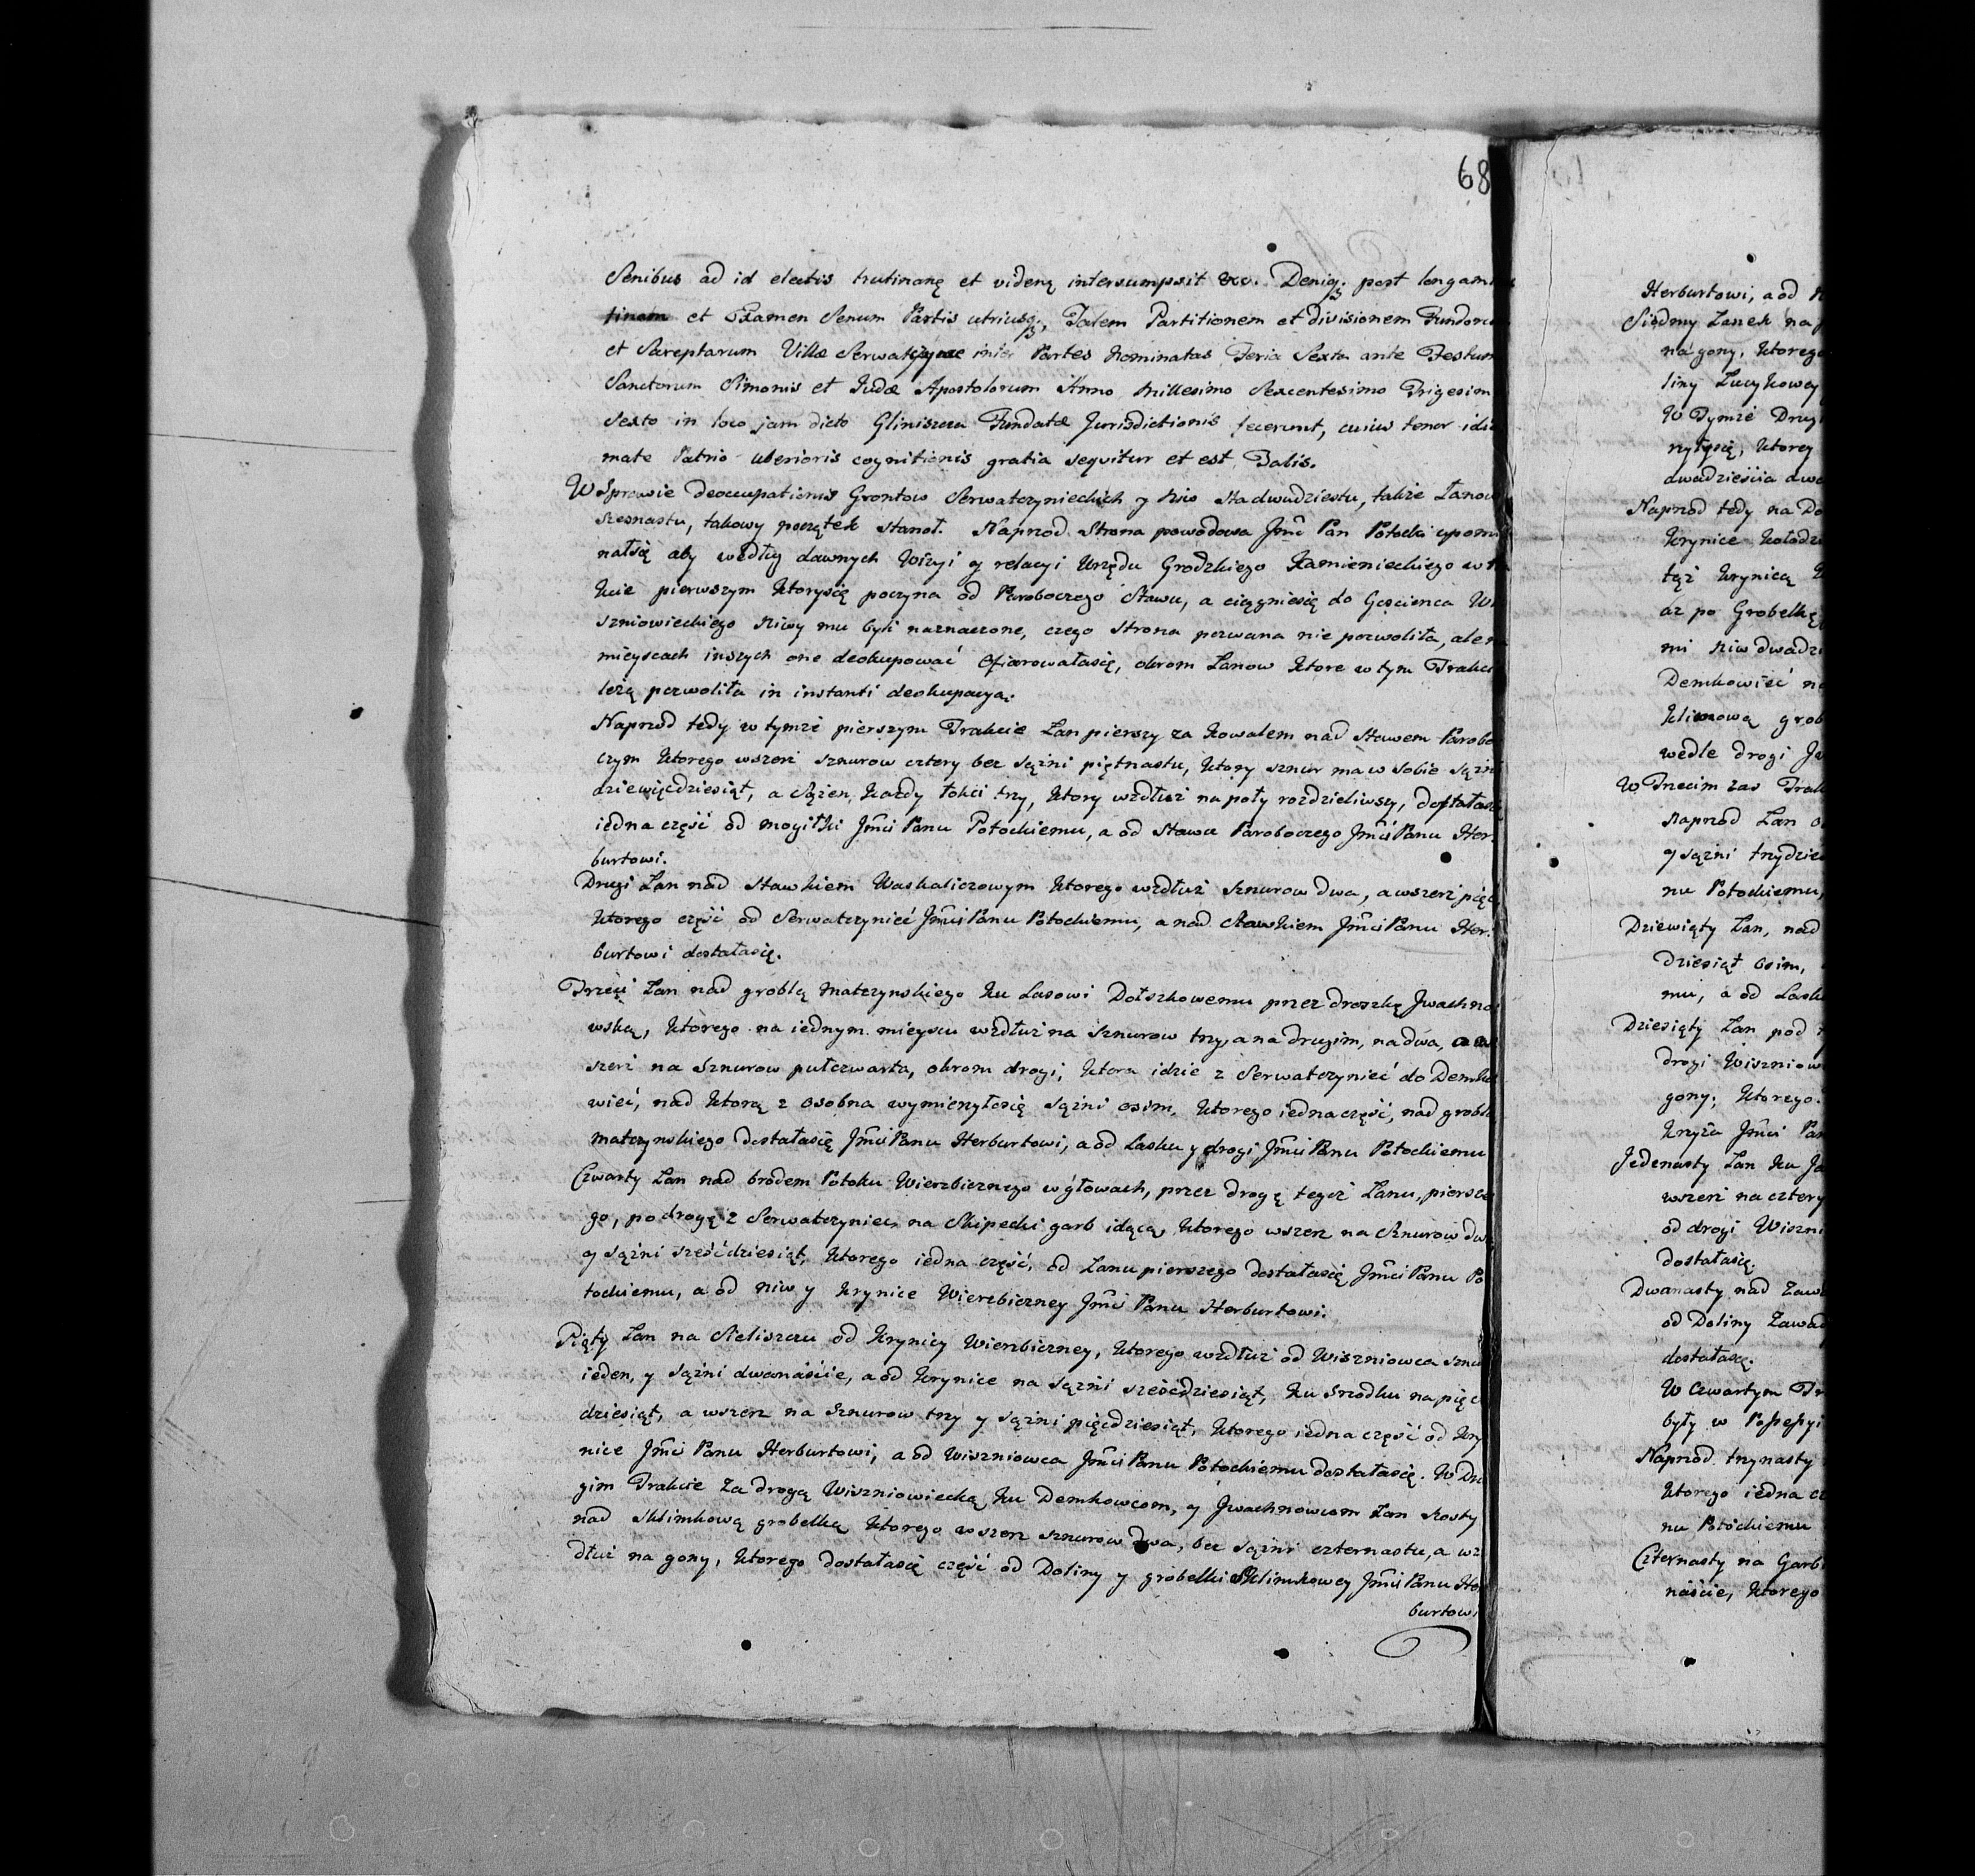 68
Senibus ad id electis trutinanę et videnę intersumpsit &c. Deniq; post longam
et Examen Senum Partis utriusq;, Talem Partitionem et divisionem Fundoru
et Sareptarum Villæ inter Partes Nominatas Feria Sexta ante Festum
Sanctorum Simonis et Judæ Apostolorum Anno Millesimo Sexcentesimo Trigesim
Sexto in loco jam dicto Gliniszcza Fundatæ Jurisdictionis fecerunt, cuius tenor idio
mate Patrio uberioris cognitionis gratia sequitur et est Talis.
W Sprawie deoccupationis Grontow Serwatczynieckich y Niw Stadwudziestu, także Łanow
szesnastu, takowy początek stanoł. Naprzod Strona powodowa Jmć Pan Potocki upomi
nałsię aby według dawnych Wizyi y relacyi Urzędu Grodzkiego Kamienieckiego w
kcie pierwszym ktorysię poczyna od Paroboczego Stawu, a ciągniesię do Goscienca Wi
szniowieckiego Niwy mu byli naznaczone, czego strona pozwana nie pozwoliła, ale
mieyscach inszych one deokupować ofiarowałasię, okrom Łanow ktore w tym Trakci
leżą pozwoliła in instanti deokupacyą.
Naprzod tedy w tymże pierszym Trakcie Łan pierszy za Kowalem nad Stawem Parobo
czym ktorego wszerz sznurow cztery bez sążni piętnastu, ktory sznur ma w sobie sążni
dziewięcdziesiąt, a sążen każdy łokci trzy, ktory wzdłuż na poły rozdzieliwszy, dostałasię
iedna część od mogiłki Jmći Panu Potockiemu, a od Stawu Paroboczego Jmći Panu Her-
burtowi.
Drugi Łan nad Stawkiem Waskaliczowym ktorego wzdłuż sznurow dwa, a wszerz pięć
ktorego część od Serwatczynieć Jmći Panu Potockiemu, a nad Stawkiem Jmći Panu Her-
burtowi dostałasię.
Trzeći Łan nad groblą Matczynskiego ku Lasowi Dołszkowemu przez droszkę Jwachno
wską, ktorego na iednym mieyscu wzdłuż na sznurow trzy, a na drugim, na dwa, a w
szerz na sznurow pułczwarta, okrom drogi, ktora idzie z Serwatczynieć do Demko
wieć, nad ktorą z osobna wymierzyłosię sążni osim, ktorego iedna część, nad groblą
Matczynskiego dostałasię Jmći Panu Herburtowi, a od Lasku y drogi Jmći Panu Potockiemu
Czwarty Łan nad brodem Potoku Wierzbicznego w głowach, przez drogę tegoż Łanu piersze
go, po drogę z Serwatczyniec na Skipecki garb idącą, ktorego wszerz na sznurow dwa
y sążni sześćdziesiąt, ktorego iedna część, od Łanu pierszego dostałasię Jmći Panu Po
tockiemu, a od niw y krynice Wierzbiczney Jmći Panu Herburtowi.
Piąty Łan na Sieliszczu od Krynicy Wierzbiczney, ktorego wzdłuż od Wiszniowca sznu
ieden, y sążni dwanaście, a od krynice na sążni sześćdziesiąt, ku śrzodku na pięć
dziesiąt, a wszerz na sznurow trzy y sążni pięcdziesiąt, ktorego iedna część od kry
nice Jmći Panu Herburtowi, a od Wiszniowca Jmći Panu Potockiemu dostałasię. W Dru
gim Trakcie za drogą Wiszniowiecką ku Demkowcom, y Jwachnowcom Łan szosty
nad Sklimkową grobelką ktorego wszerz sznurow dwa, bez sążni czternastu, a wz
dłuż na gony, ktorego dostałasię część od Doliny y grobelki Sklimkowey Jmći Panu Her
burtowi
Herburtowi, a od
Siodmy Łanek na
na gony, ktorego
liny Łucykowey
W Tymże Drugi
ktorey
dwadzieścia dwa
Naprzod tedy na Do
krynice
też krynicą
aż po Grobelkę
mi niw dwadzi
Demkowieć na
Klimową grob
wedle drogi
W Trzecim zas Trak
naprzod Łan
y sążni trzydzieś
nu Potockiemu,
Dziewiąty Łan, nad
dziesiąt osim,
mu, a od Lasku
Dziesiąty Łan pod
drogi Wiszniow
gony, ktorego
krzyża Jmći Pan
Jedenasty Łan ku
wszerz na cztery
od drogi Wiszni
dostałasię.
Dwanasty nad Zawa
od Doliny Zawad
dostałasię.
W Czwartym Tr
były w Possessyi
Naprzod trzynasty
ktorego iedna cz
nu Potockiemu
Czternasty na Garb
naście, ktorego